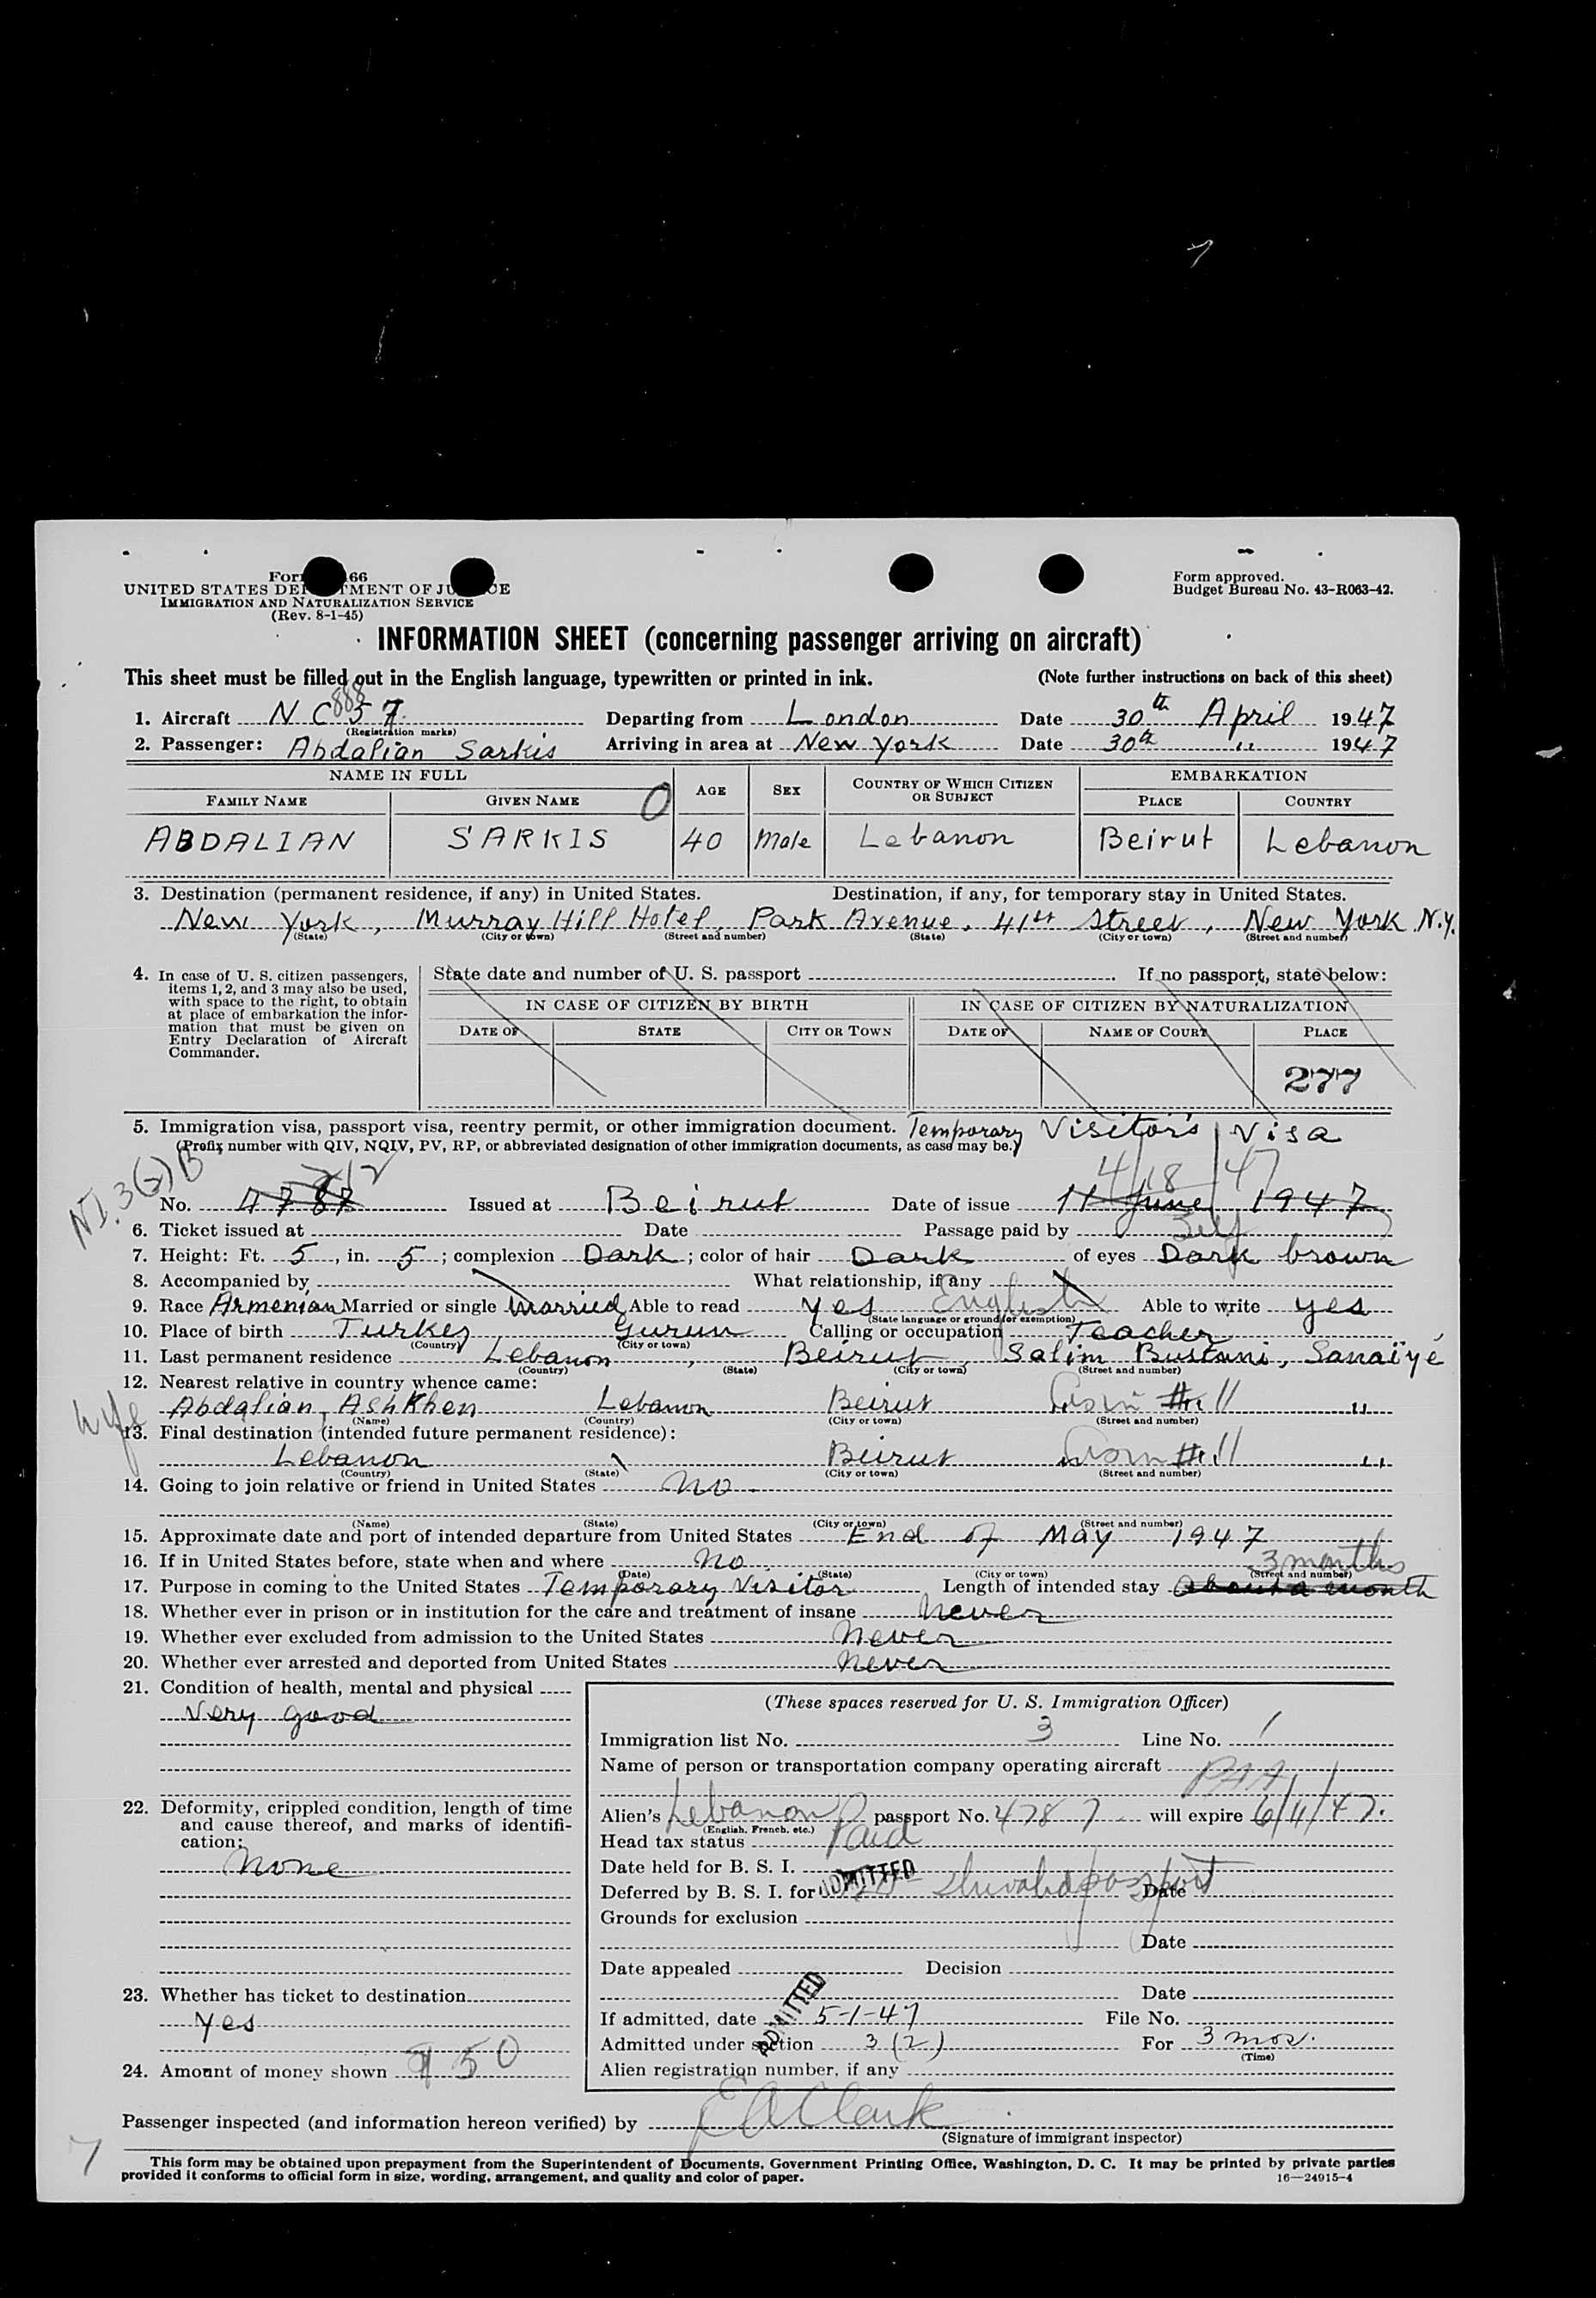 UNITED STATES DEPARTMENT OF JUSTICE
IMMIGRATION AND NATURALIZATION SERVICE
(Rev. 8-1-45)
Form approved.
Budget Bureau No. 43-R063-42.
INFORMATION SHEET (concerning passenger arriving on aircraft)
This sheet must be filled out in the English language, typewritten or printed in ink. (Note further instructions on back of this sheet)
888
1. Aircraft N C 57 Departing from London Date 30th April 1947
(Registration marks)
2. Passenger: Abdalian Sarkis Arriving in area at New York Date 30th " 1947
NAME IN FULL AGE SEX COUNTRY OF WHICH CITIZEN OR SUBJECT EMBARKATION
FAMILY NAME GIVEN NAME 0 PLACE COUNTRY
ABDALIAN SARKIS 40 Male Lebanon Beirut Lebanon
3. Destination (permanent residence, if any) in United States. Destination, if any, for temporary stay in United States.
New York, Murray Hill Hotel, Park Avenue, 41st Street, New York N.Y.
(State) (City or town) (Street and number) (State) (City or town) (Street and number)
4. In case of U. S. citizen passengers, items 1, 2, and 3 may also be used, with space to the right, to obtain at place of embarkation the information that must be given on Entry Declaration of Aircraft Commander.
State date and number of U. S. passport If no passport, state below:
IN CASE OF CITIZEN BY BIRTH IN CASE OF CITIZEN BY NATURALIZATION
DATE OF STATE CITY OR TOWN DATE OF NAME OF COURT PLACE
277
5. Immigration visa, passport visa, reentry permit, or other immigration document. Temporary Visitor's Visa
(Prefix number with QIV, NQIV, PV, RP, or abbreviated designation of other immigration documents, as case may be.)
NI 3(2) B 212 4/18/47
No. 4787 Issued at Beirut Date of issue 11 June 1947
6. Ticket issued at Date Passage paid by Self
7. Height: Ft. 5, in. 5; complexion Dark; color of hair Dark of eyes Dark brown
8. Accompanied by What relationship, if any
9. Race Armenian Married or single Married Able to read yes English Able to write yes
(State language or ground for exemption)
10. Place of birth Turkey Gurun Calling or occupation Teacher
(Country) (City or town)
11. Last permanent residence Lebanon, Beirut, Salim Bustani, Sanaïyé
(Country) (State) (City or town) (Street and number)
12. Nearest relative in country whence came:
wife Abdalian, Ashkhen Lebanon Beirut #11 "
(Name) (Country) (City or town) (Street and number)
13. Final destination (intended future permanent residence):
Lebanon Beirut #11 "
(Country) (State) (City or town) (Street and number)
14. Going to join relative or friend in United States No
(Name) (State) (City or town) (Street and number)
15. Approximate date and port of intended departure from United States End of May 1947
16. If in United States before, state when and where No 3 months
(Date) (State) (City or town) (Street and number)
17. Purpose in coming to the United States Temporary Visitor Length of intended stay About a month
18. Whether ever in prison or in institution for the care and treatment of insane Never
19. Whether ever excluded from admission to the United States Never
20. Whether ever arrested and deported from United States Never
21. Condition of health, mental and physical
Very good
22. Deformity, crippled condition, length of time and cause thereof, and marks of identification:
None
23. Whether has ticket to destination
Yes
24. Amount of money shown 950
(These spaces reserved for U. S. Immigration Officer)
Immigration list No. 3 Line No. 1
Name of person or transportation company operating aircraft PAA
Alien's Lebanon passport No. 4787 will expire 6/11/47.
(English, French, etc.)
Head tax status Paid
Date held for B. S. I.
ADMITTED
Deferred by B. S. I. for passport Date
Grounds for exclusion
Date
Date appealed Decision
Date
ADMITTED
If admitted, date 5-1-47 File No.
Admitted under section 3(2) For 3 mos.
(Time)
Alien registration number, if any
Passenger inspected (and information hereon verified) by E A Clark
(Signature of immigrant inspector)
7
This form may be obtained upon prepayment from the Superintendent of Documents, Government Printing Office, Washington, D. C. It may be printed by private parties
provided it conforms to official form in size, wording, arrangement, and quality and color of paper. 16—24915-4